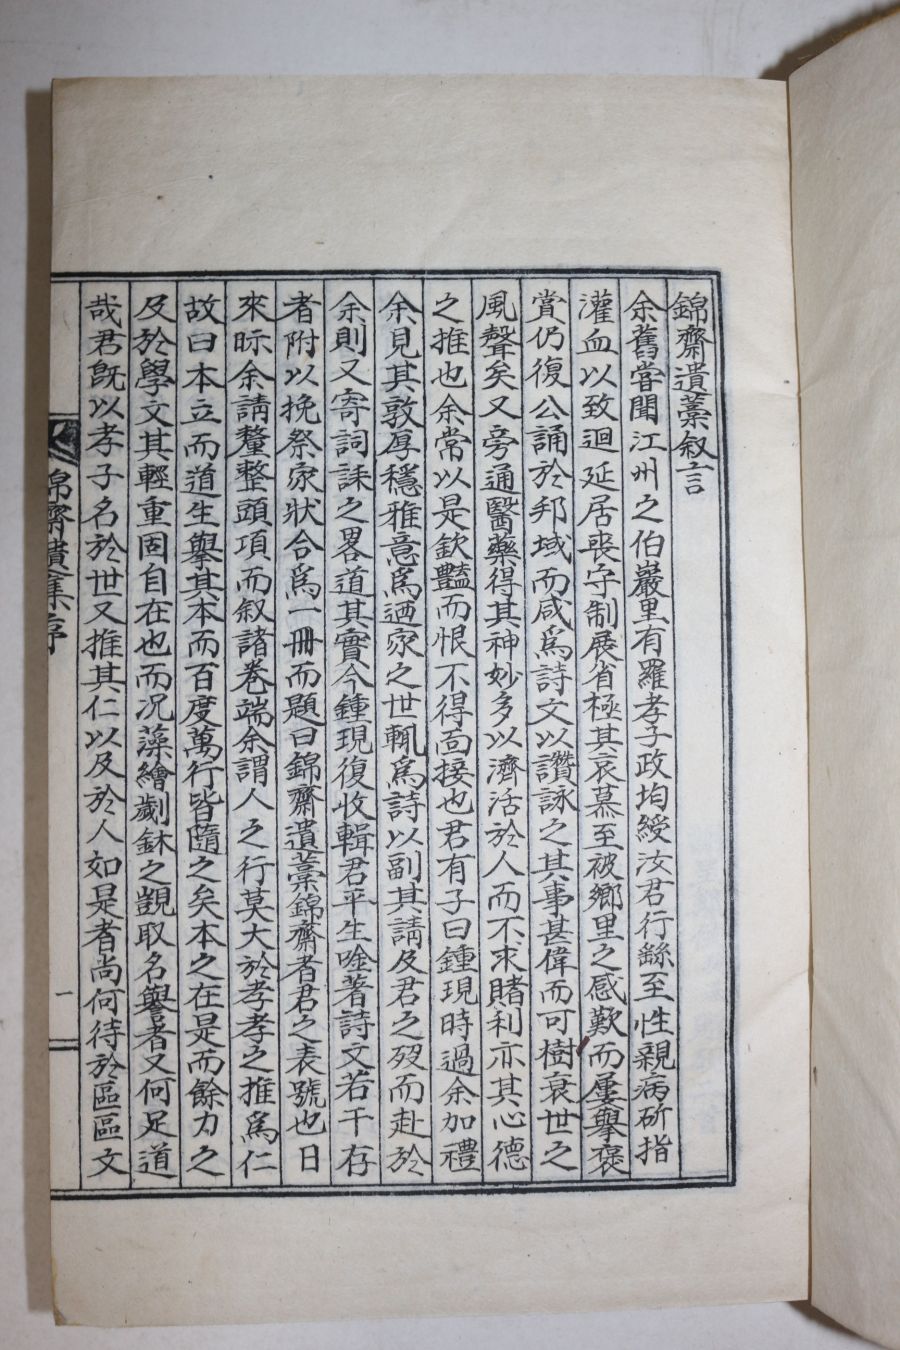 錦齋遺藁叙言
余舊嘗聞江州之伯巖里有羅孝子政均綬汝君行懿至性親病斫指
灌血以致迴延居喪守制展省極其哀慕至被鄉里之感歎而屢擧褒
賞仍復公誦於邦域而咸爲詩文以讚詠之其事甚偉而可樹衰世之
風聲矣又旁通醫藥得其神妙多以濟活於人而不求賭利亦其心德
之推也余常以是欽豔而恨不得面接也君有子曰鍾現時過余加禮
余見其敦厚穩雅意爲迺家之世輒爲詩以副其請及君之歿而赴於
余則又寄詞誄之畧道其實今鍾現復收輯君平生唫著詩文若干存
者附以挽祭家狀合爲一冊而題曰錦齋遺藁錦齋者君之表號也日
來眎余請釐整頭項而叙諸卷端余謂人之行莫大於孝孝之推爲仁
故曰本立而道生擧其本而百度萬行皆隨之矣本之在是而餘力之
及於學文其輕重固自在也而况藻繪劌鉥之觀取名譽者又何足道
哉君旣以孝子名於世又推其仁以及於人如是者尚何待於區區文
錦齋遺藁序
一